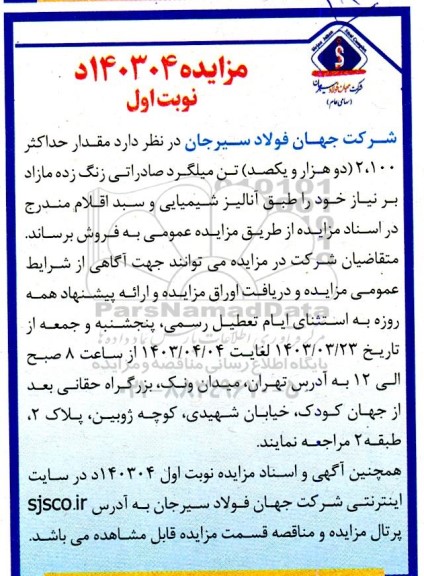 مزایده ۱۴۰۳۰۴د
نوبت اول
شرکت جهان فولاد سیرجان
(سهامی عام)
شرکت جهان فولاد سیرجان در نظر دارد مقدار حداکثر
۲،۱۰۰ (دو هزار و یکصد) تن میلگرد صادراتی زنگ زده مازاد
بر نیاز خود را طبق آنالیز شیمیایی و سبد اقلام مندرج
در اسناد مزایده از طریق مزایده عمومی به فروش برساند.
متقاضیان شرکت در مزایده می توانند جهت آگاهی از شرایط
عمومی مزایده و دریافت اوراق مزایده و ارائه پیشنهاد همه
روزه به استثنای ایام تعطیل رسمی، پنجشنبه و جمعه از
تاریخ ۱۴۰۳/۰۳/۲۳ لغایت ۱۴۰۳/۰۴/۰۴ از ساعت ۸ صبح
الی ۱۲ به آدرس تهران، میدان ونک، بزرگراه حقانی بعد
از جهان کودک، خیابان شهیدی، کوچه ژوبین، پلاک ۲،
طبقه۲ مراجعه نمایند.
همچنین آگهی و اسناد مزایده نوبت اول ۱۴۰۳۰۴د در سایت
اینترنتی شرکت جهان فولاد سیرجان به آدرس sjsco.ir
پرتال مزایده و مناقصه قسمت مزایده قابل مشاهده می باشد.
ParsNamadData
پایگاه اطلاع رسانی مناقصه و مزایده